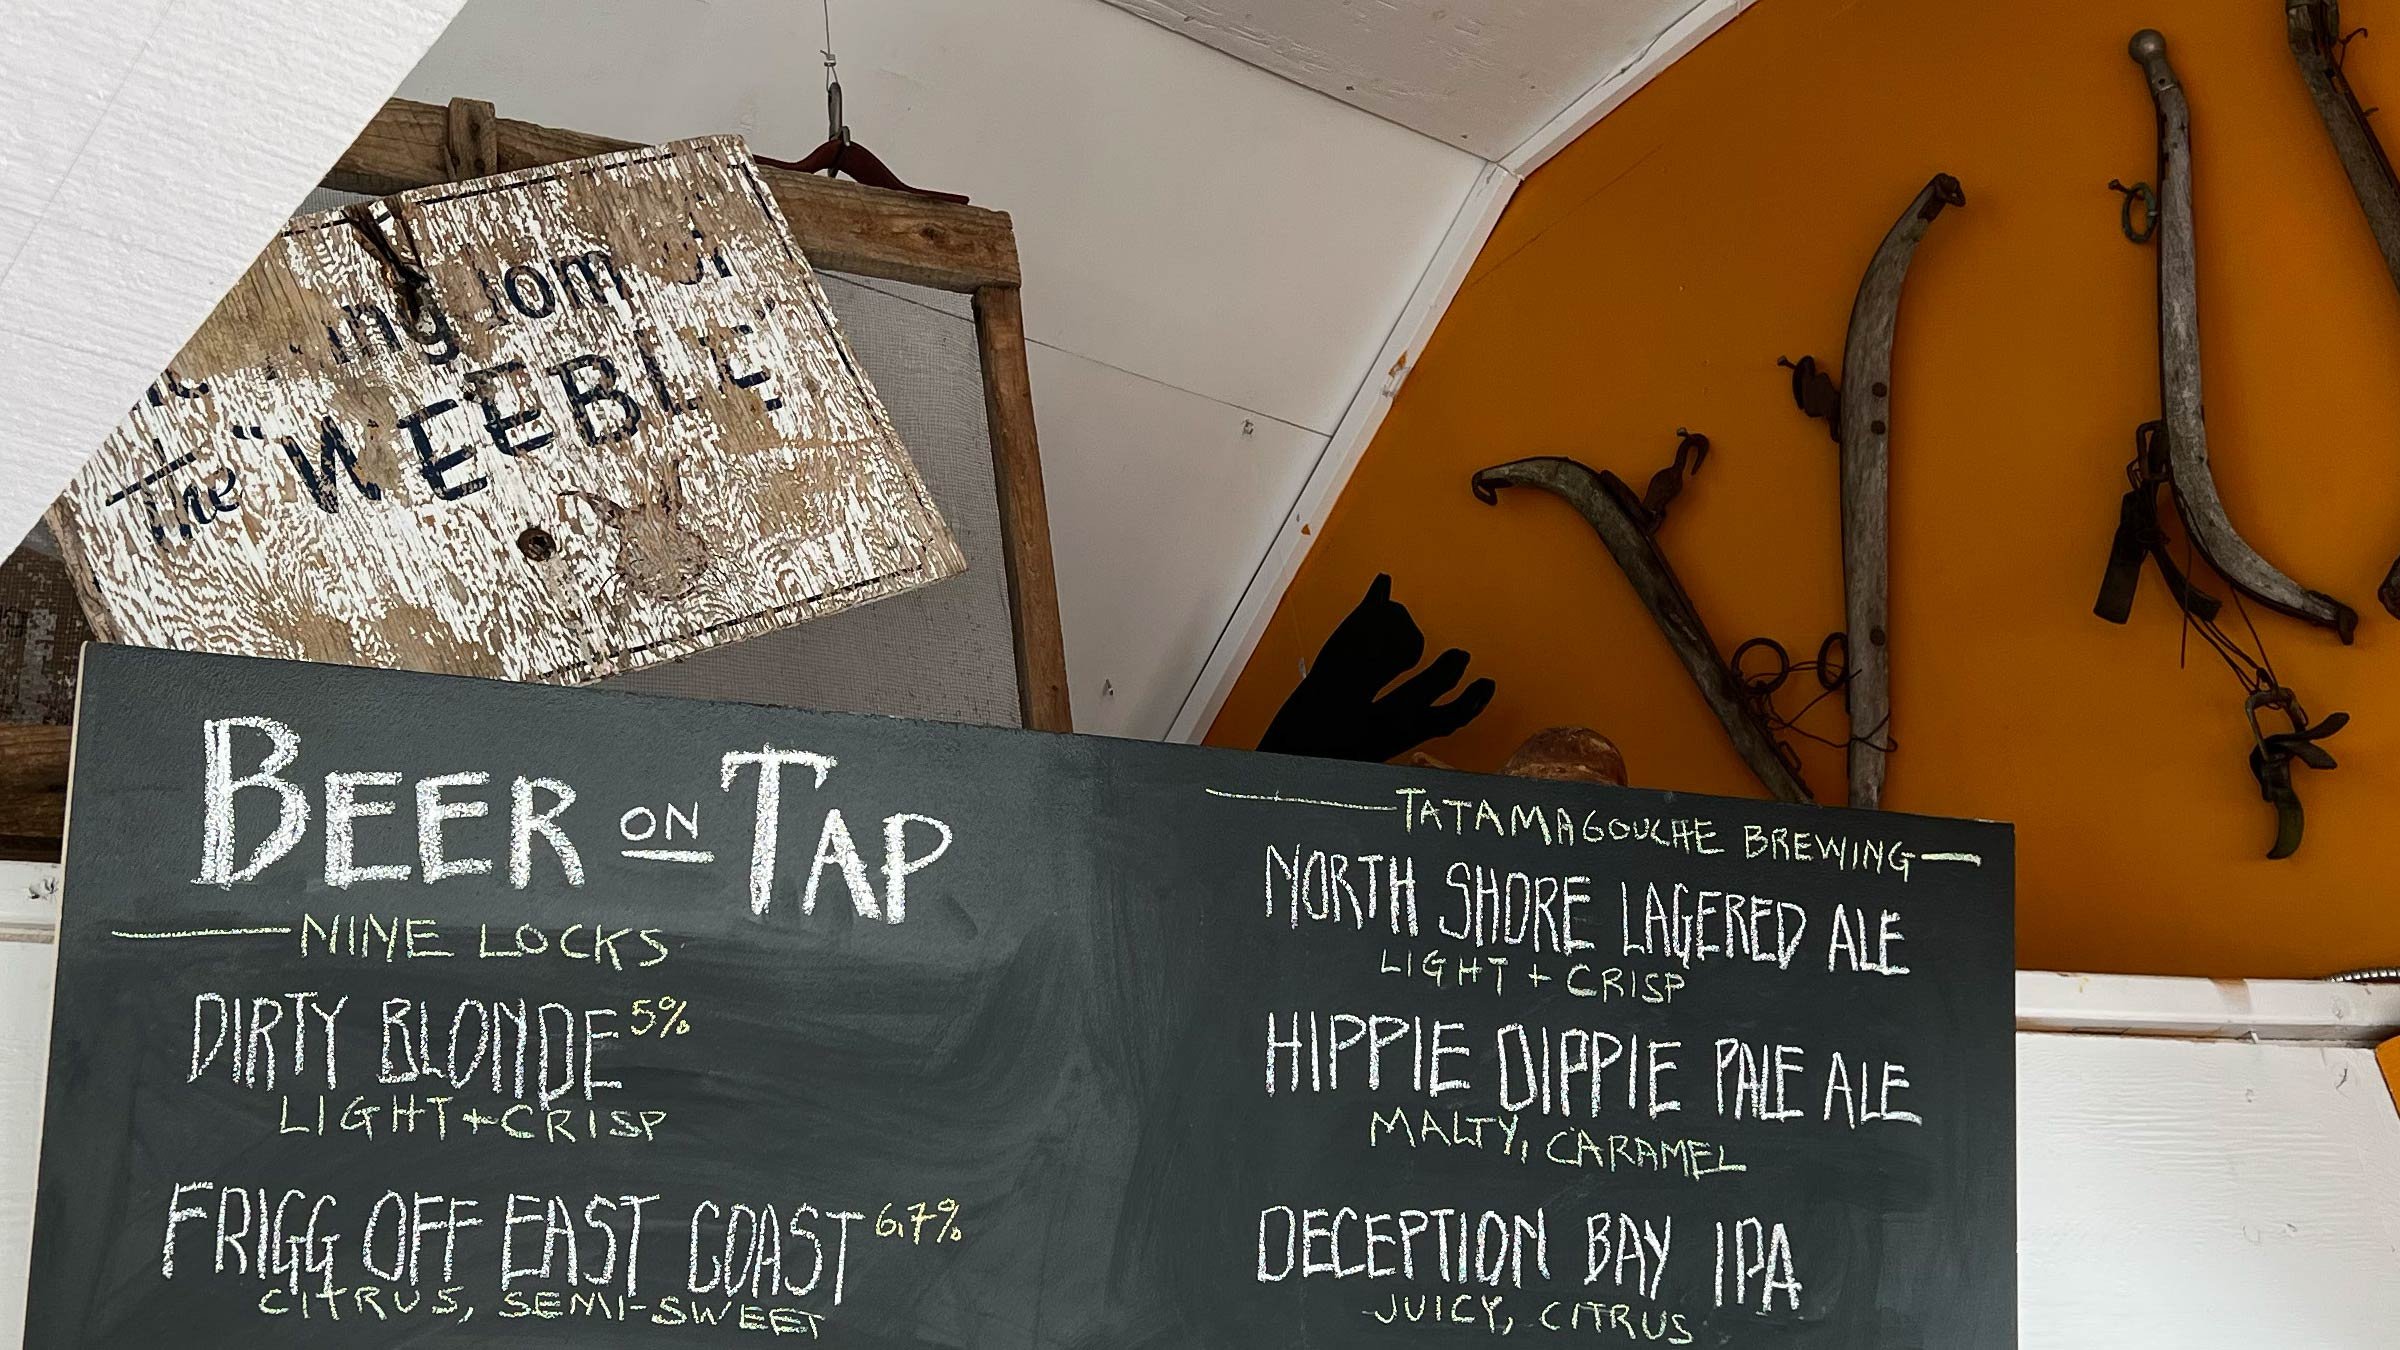 The "WEEBLE"
BEER ON TAP
NINE LOCKS
DIRTY BLONDE 5%
LIGHT + CRISP
FRIGG OFF EAST COAST 6.7%
CITRUS, SEMI-SWEET
TATAMAGOUCHE BREWING
NORTH SHORE LAGERED ALE
LIGHT + CRISP
HIPPIE DIPPIE PALE ALE
MALTY, CARAMEL
DECEPTION BAY IPA
JUICY, CITRUS